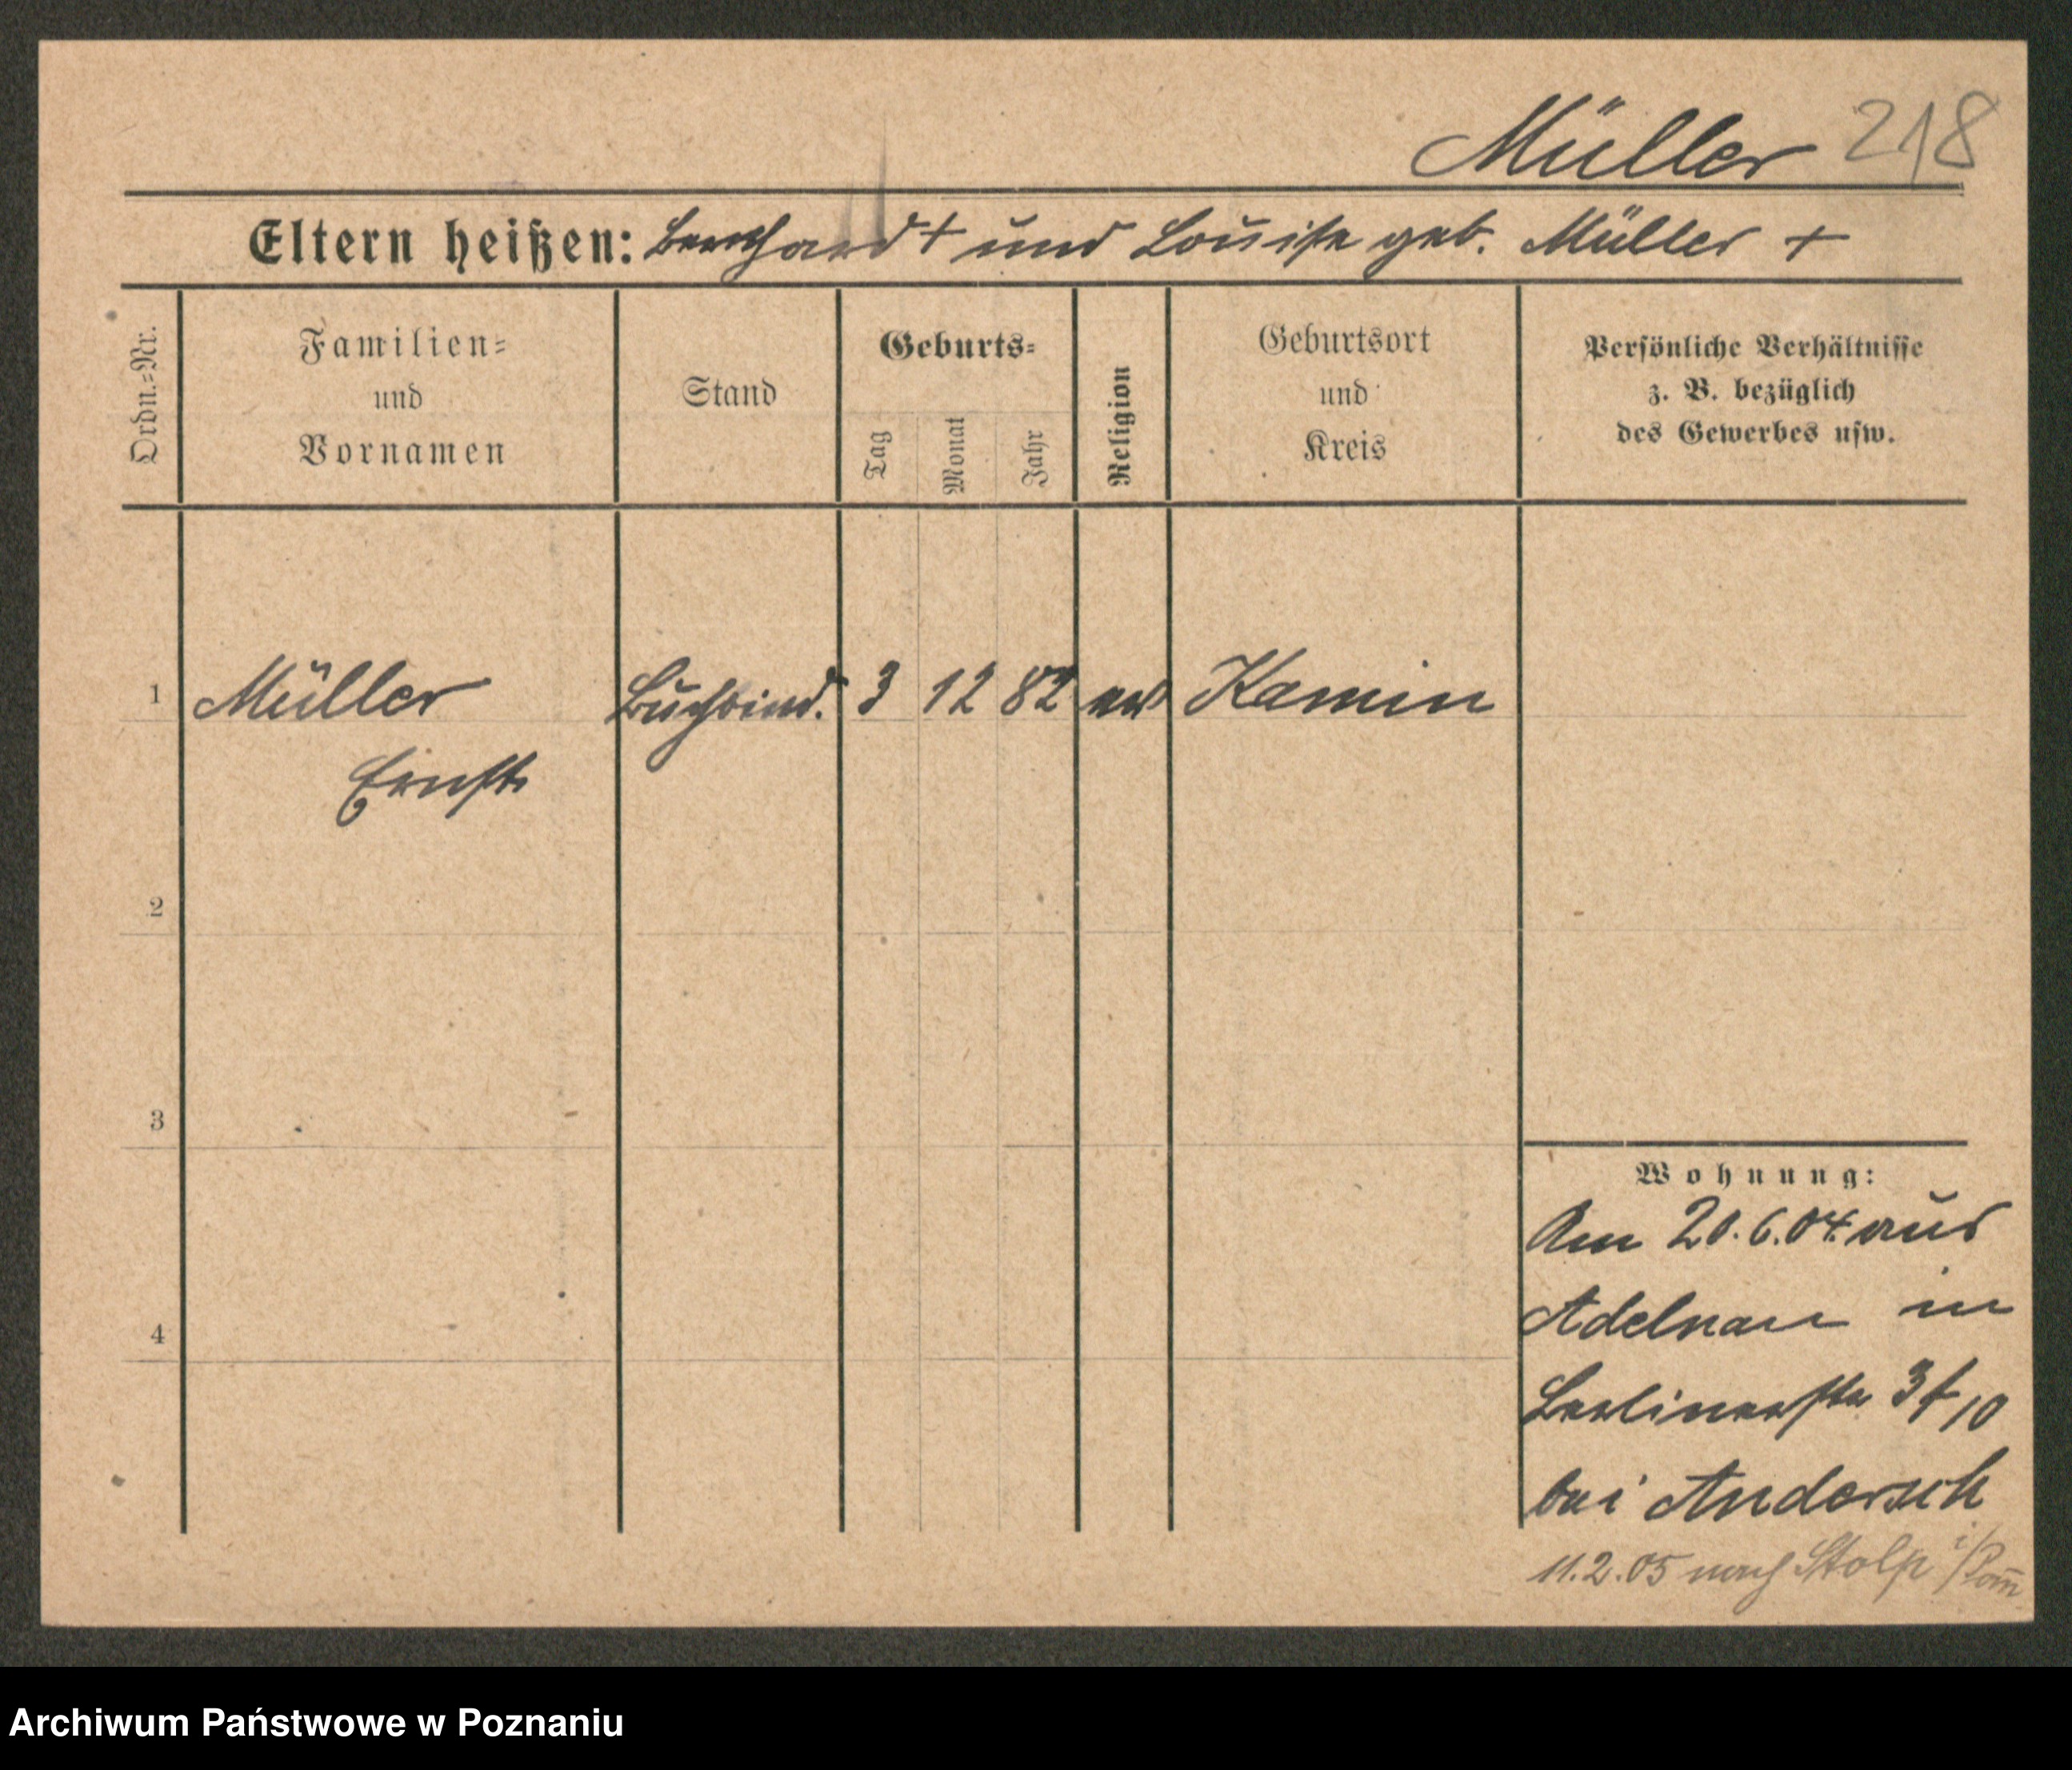 Müller 218
Eltern heißen: Bernhard + und Louise geb. Müller +
Ordn.=Nr.
Familien=
und
Vornamen
Stand
Geburts=
Tag
Monat
Jahr
Religion
Geburtsort
und
Kreis
Persönliche Verhältnisse
z. B. bezüglich
des Gewerbes usw.
1 Müller Buchbind. 3 12 82 ev Kamin
Ernst
2
3
4
Wohnung:
Am 20.6.04 aus
Adelnau in
Berlinerstr
bei Andersch
11.2.05 nach Stolp i/Pom
Archiwum Państwowe w Poznaniu